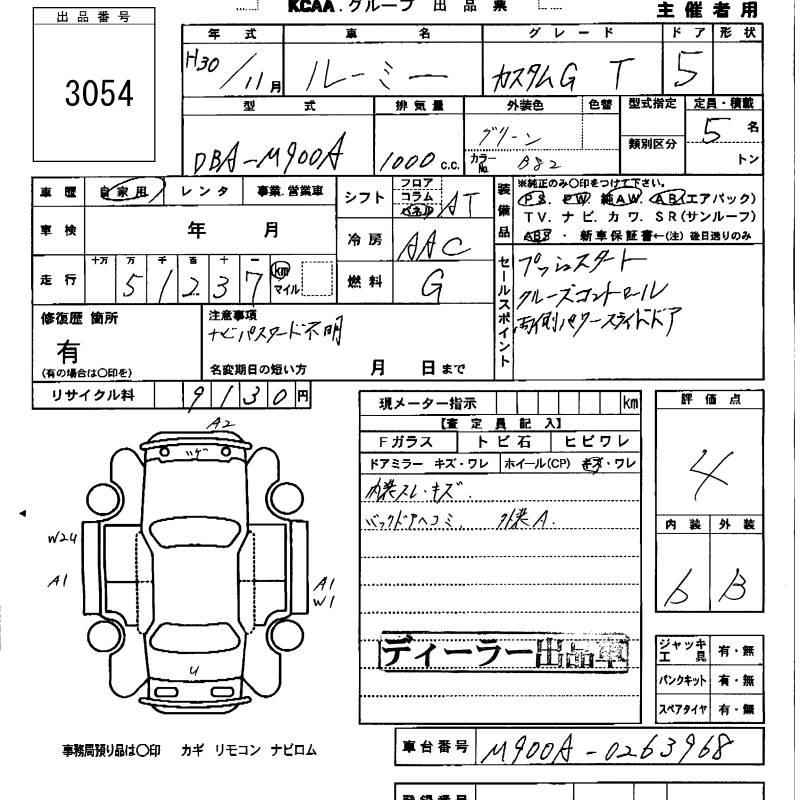 KCAA.グループ 出品票
主催者用
出品番号
3054
年式 車名 グレード ドア 形状
H30/11月 ルーミー カスタムG T 5
型式 排気量 外装色 色替 型式指定 定員・積載
DBA-M900A 1000 c.c. グリーン 類別区分 5名
カラーNo. B82 トン
車歴 自家用 レンタ 事業.営業車
シフト フロア コラム パネル AT
装備品 ※純正のみ○印をつけて下さい。
PS. PW. 純AW. AB(エアバック)
TV. ナビ. カワ. SR(サンルーフ)
ABS・新車保証書←(注)後日送りのみ
車検 年 月
冷房 AAC
走行 十万 万 千 百 十 一
51237 km マイル
燃料 G
セールスポイント
プッシュスタート
クルーズコントロール
両側パワースライドドア
修復歴 箇所
有
(有の場合は○印を)
注意事項
ナビパスワード不明
名変期日の短い方 月 日まで
リサイクル料 9130円
現メーター指示 km
【査定員記入】
Fガラス トビ石 ヒビワレ
ドアミラー キズ・ワレ ホイール(CP) キズ・ワレ
内装スレ・キズ.
バックドアヘコミ. 外装A.
ディーラー出品車
評価点
4
内装 外装
b B
ジャッキ工具 有・無
パンクキット 有・無
スペアタイヤ 有・無
A2
W2U
A1
A1
W1
U
事務局預り品は○印 カギ リモコン ナビロム
車台番号 M900A-0263968
登録番号